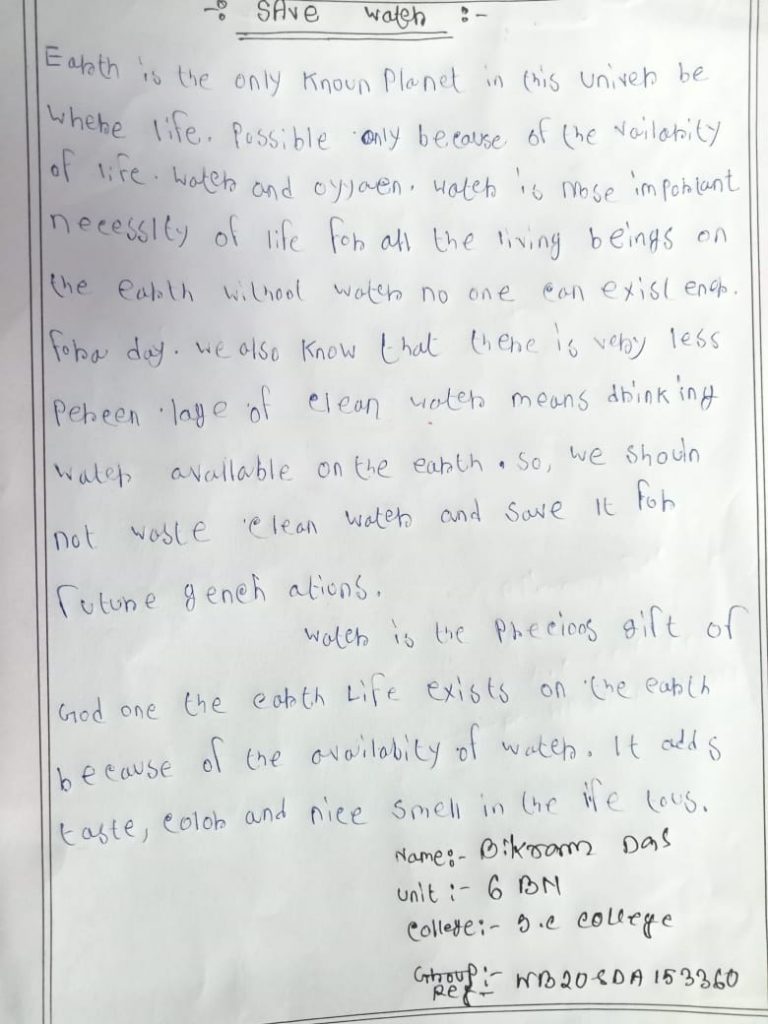 -: SAve water :-
Earth is the only Known Planet in this univer be
where life. Possible only because of the vailabity
of life. water and oyyaen. water is mose important
necessity of life for all the living beings on
the earth withool water no one can exisl encp.
fora day. we also Know that there is very less
Pereen lage of clean water means drinking
water available on the earth. so, we shouln
not waste clean water and save it for
future gener ations.
water is the Precioos gift of
God one the earth Life exists on the earth
because of the availabity of water. It adds
taste, color and nice smell in the life tous.
Name:- Bikram Das
unit :- 6 BN
College:- g.c college
Group :- WB20SDA153360
Reg